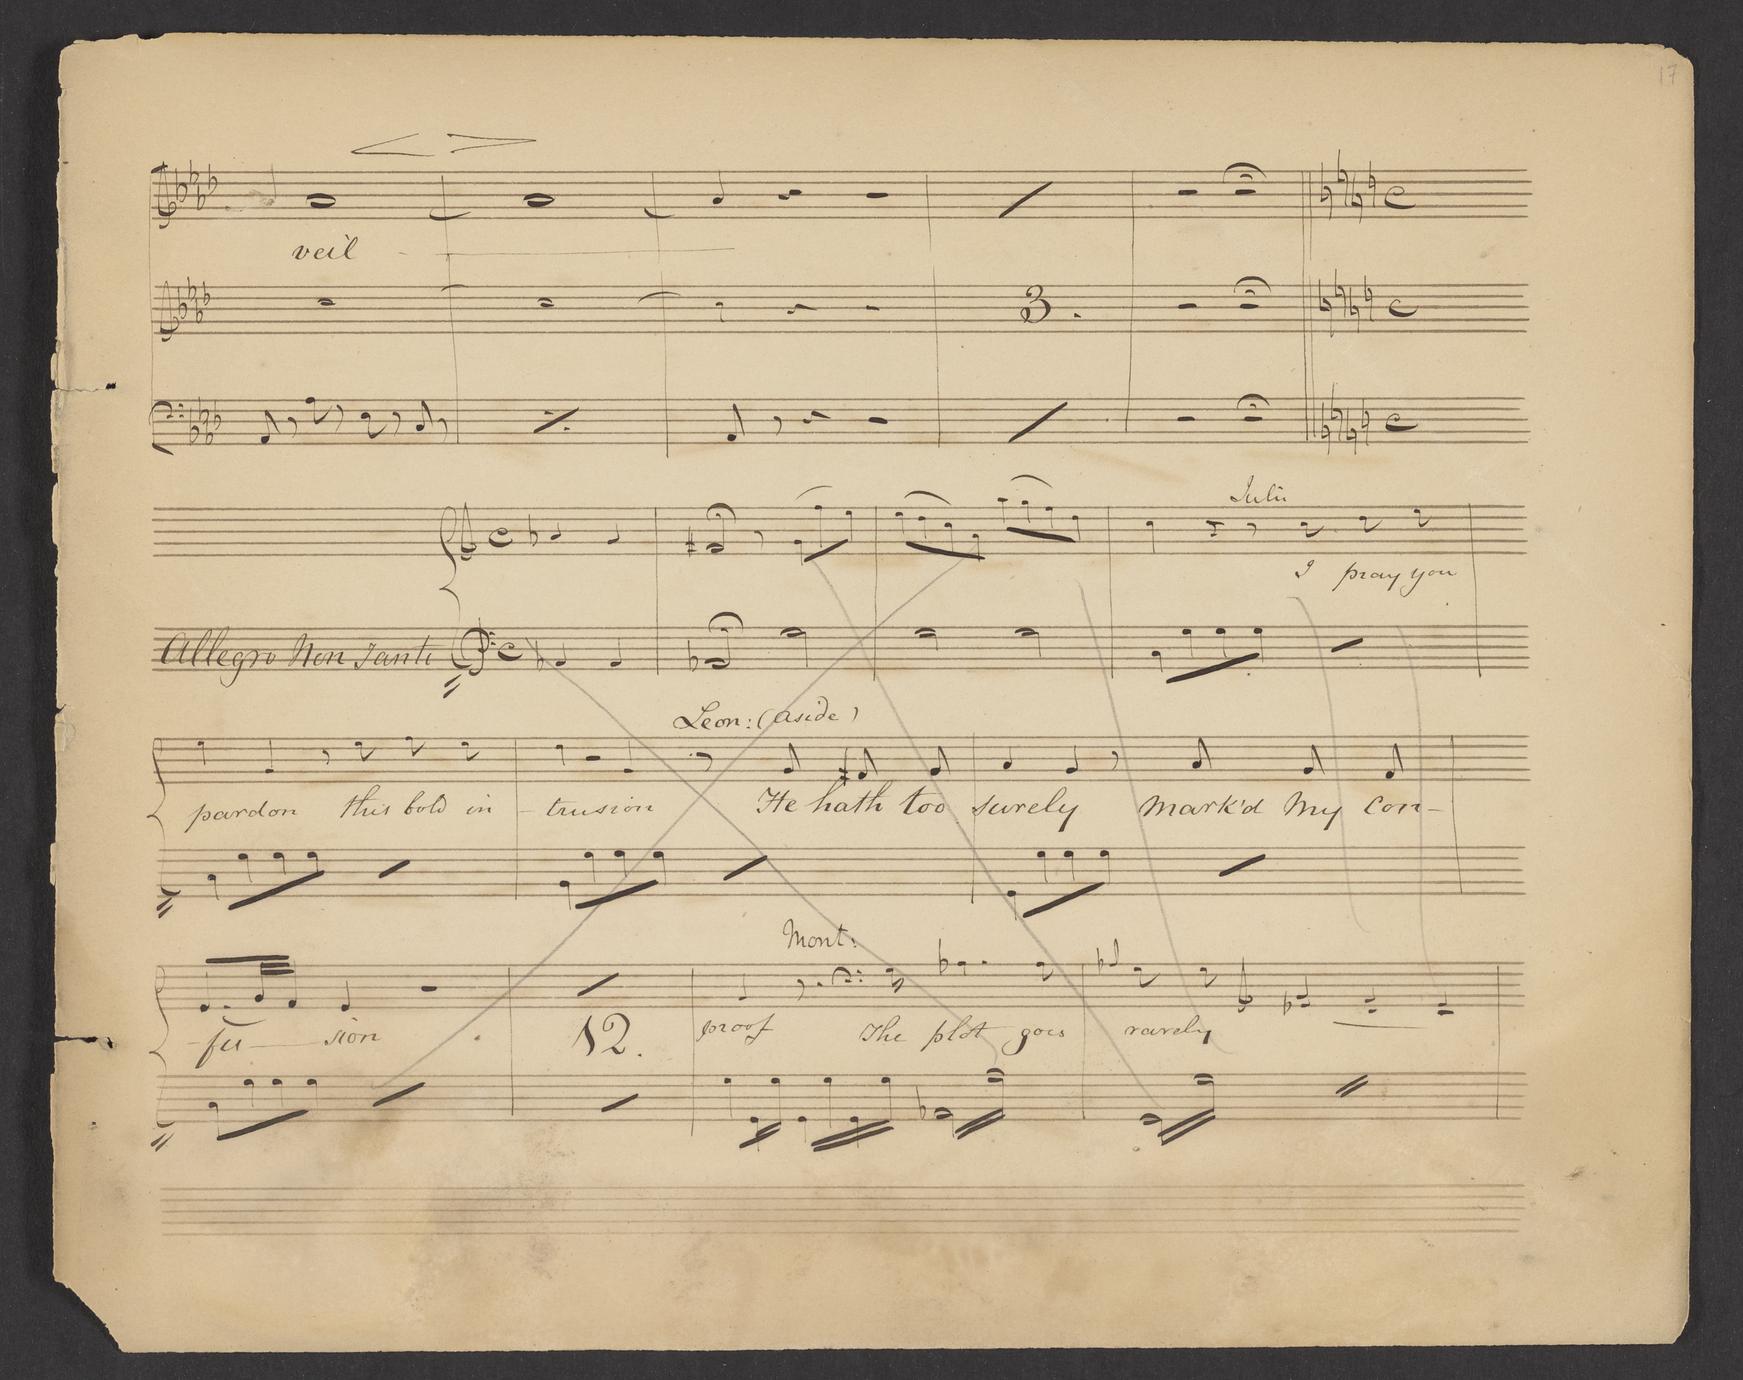 17
veil
3.
Julii
I pray you
Allegro Non Tanto
Leon: (aside)
pardon this bold in - trusion He hath too surely mark'd My Con-
Mont:
-fu - sion 12. proof The plot goes rarely